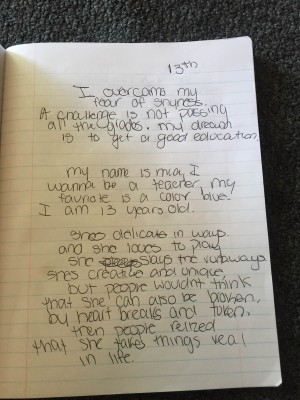 13th
I overcame my
fear of shyness.
A challenge is not passing
all the grades. my dream
is to get a good education
my name is micay I
wanna be a teacher, my
favriote is a color blue.
I am 13 years old.
shes delicate in ways
and she loves to play
she slays the runaways
shes creative and unique
but people wouldnt think
that she can also be broken,
by heart breaks and token,
then people relized
that she takes things real
in life.